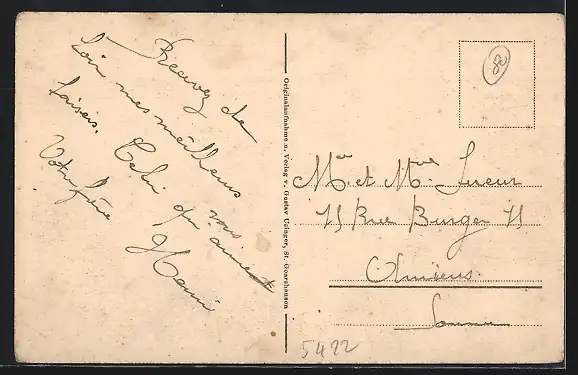 Recevez de
loin mes meilleurs
baisers. Celui qui vous
aime
Votre frère Henri
Originalaufnahme u. Verlag v. Gustav Usinger, St. Goarshausen
80
Mr et Mme Sueur
75 Rue Burger 75
Amiens
Somme
5422